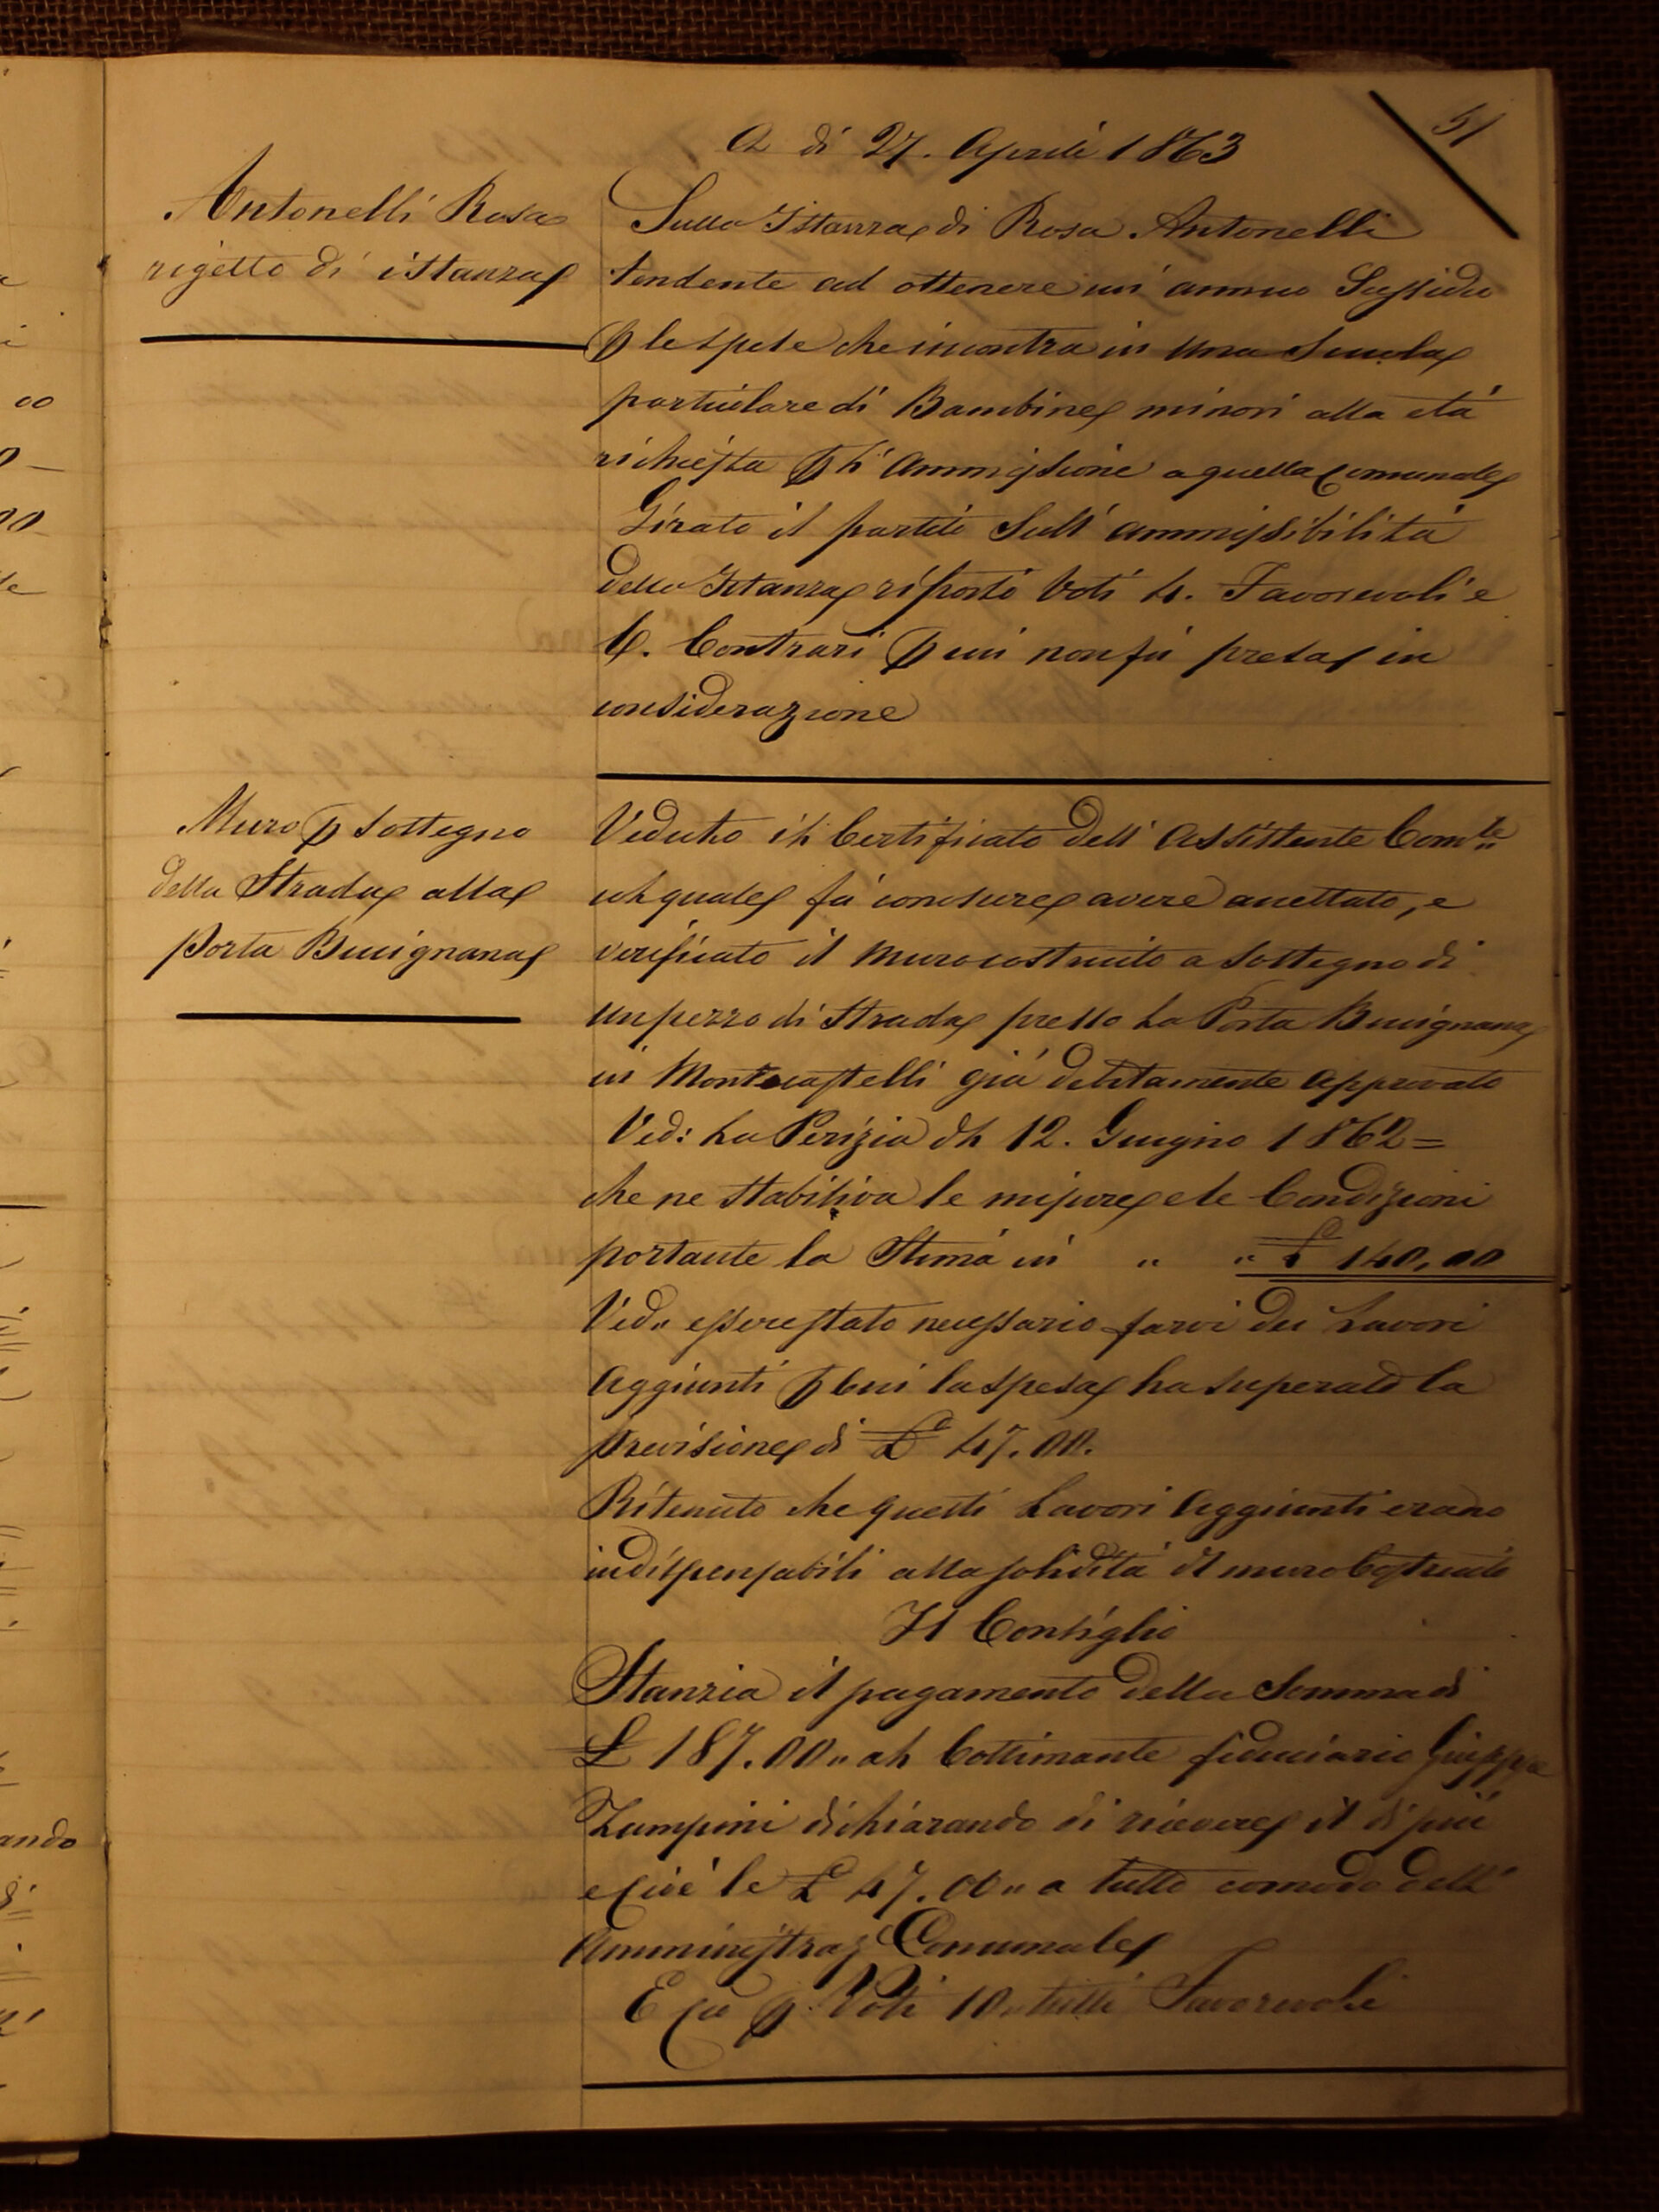 51
A di 27. Aprile 1863
Antonelli Rosa
rigetto di istanza
Sulla Istanza di Rosa Antonelli
tendente ad ottenere un' annuo Sussidio
p le spese che incontra in una Scuola
particolare di Bambine minori alla età
richiesta p l' Ammissione a quella Comunale
Girato il partito sull' ammissibilità
della Istanza riportò Voti 4. Favorevoli e
6. Contrari p cui non fù presa in
considerazione
Muro p sostegno
della Strada alla
porta Bucignana
Veduto il Certificato dell' Assistente Com.le
il quale fà conoscere avere accettato, e
verificato il muro costruito a sostegno di
un pezzo di Strada presso la Porta Bucignana
in Montecastelli già debitamente approvato
Ved: la Perizia dl 12. Giugno 1862 =
che ne stabiliva le misure e le Condizioni
portante la Stima in " " £ 140,00
Ved.. essere stato necessario farvi dei Lavori
Aggiunti p cui la spesa ha superato la
previsione di £ 47.00.
Ritenuto che questi Lavori Aggiunti erano
indispensabili alla solidità dl muro Costruito
Il Consiglio
Stanzia il pagamento della Somma di
£ 187.00 " al Cottimante fiduciario Giuseppe
Zampini dichiarando di ricevere il di più
e cioè le £ 47.00 " a tutto comodo dell'
Amministraz Comunale
E ciò p. Voti 10 " tutti Favorevoli
ando